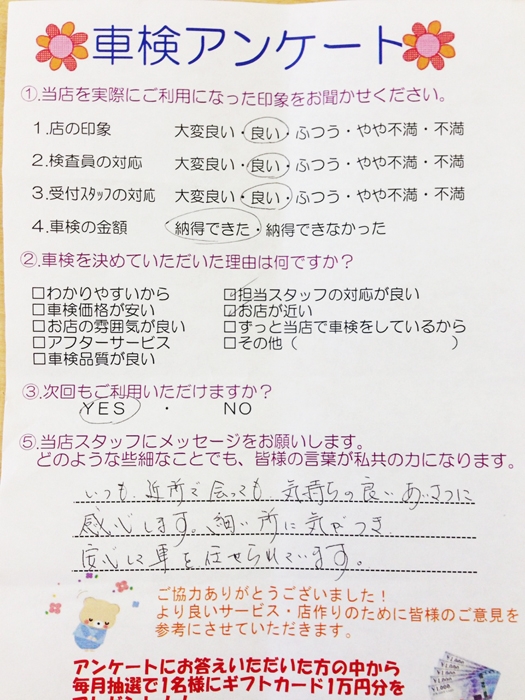 車検アンケート
①.当店を実際にご利用になった印象をお聞かせください。
1.店の印象 大変良い・良い・ふつう・やや不満・不満
2.検査員の対応 大変良い・良い・ふつう・やや不満・不満
3.受付ｽﾀｯﾌの対応 大変良い・良い・ふつう・やや不満・不満
4.車検の金額 納得できた・納得できなかった
②.車検を決めていただいた理由は何ですか？
□わかりやすいから □担当スタッフの対応が良い
□車検価格が安い □お店が近い
□お店の雰囲気が良い □ずっと当店で車検をしているから
□アフターサービス □その他（ ）
□車検品質が良い
③.次回もご利用いただけますか？
YES ・ NO
⑤.当店スタッフにメッセージをお願いします。
どのような些細なことでも、皆様の言葉が私共の力になります。
いつも、近所で会っても 気持ちの良いあいさつに
感心します。細い所に気がつき
安心して車を任せられています。
ご協力ありがとうございました！
より良いサービス・店作りのために皆様のご意見を
参考にさせていただきます。
アンケートにお答えいただいた方の中から
毎月抽選で1名様にギフトカード1万円分を